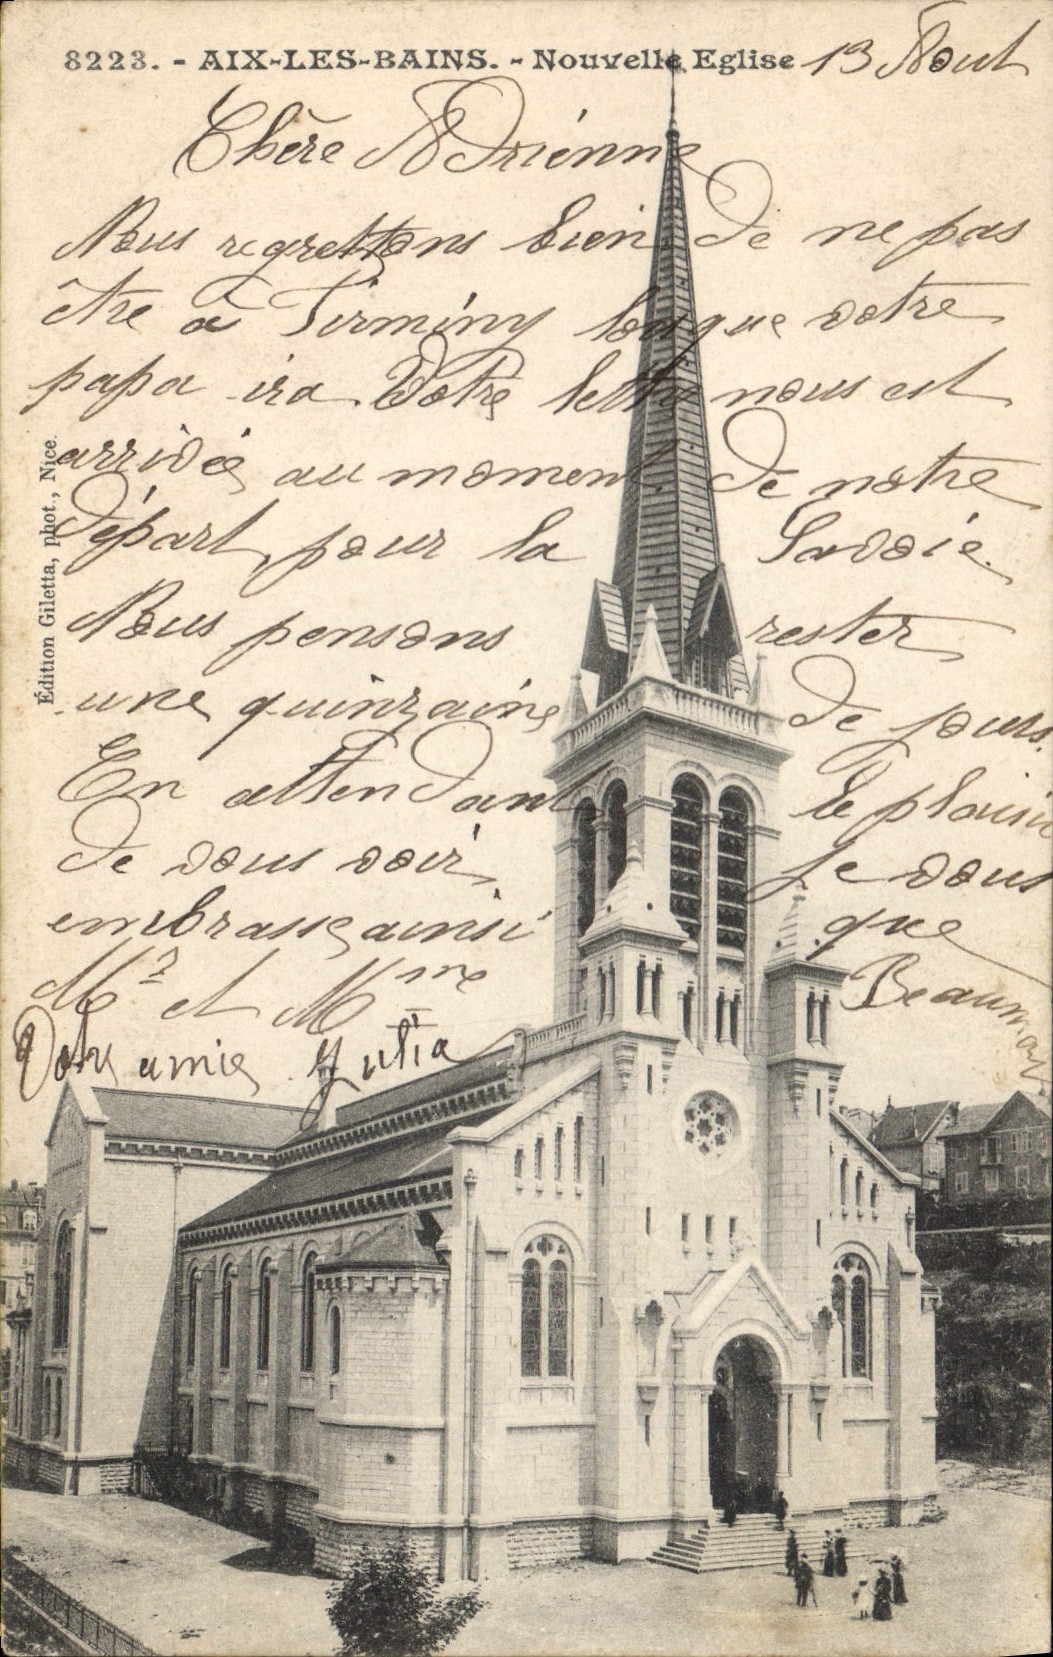 8223. - AIX-LES-BAINS. - Nouvelle Eglise 13 Aout
Chère Adriénne
Nous regrettons bien de ne pas
être à Firminy lorsque votre
papa ira. Votre lettre nous est
arrivée au moment de notre
départ pour la Savoie.
Nous pensons rester
une quinzaine de jours.
En attendant le plaisir
de vous voir, je vous
embrasse ainsi que
Mr et Mme Beaumont
Votre amie Julia
Édition Giletta, phot., Nice.